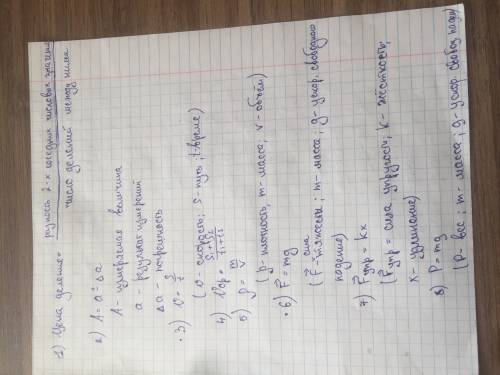 1) Цена деления = разность 2-х соседних числовых значений
число делений между ними
2) A = a ± Δa
A - измеряемая величина
a - результат измерений
Δa - погрешность
3) v = s/t
(v - скорость; s - путь; t - время)
4) Vср = s1+s2/t1+t2
5) ρ = m/v
(ρ - плотность, m - масса, v - объём)
6) F = mg
(F - сила тяжести; m - масса; g - ускор. свободного
падения)
7) Fупр = kx
(Fупр = сила упругости; k - жёсткость;
x - удлинение)
8) P = mg
(P - вес; m - масса; g - ускор свобод паден)